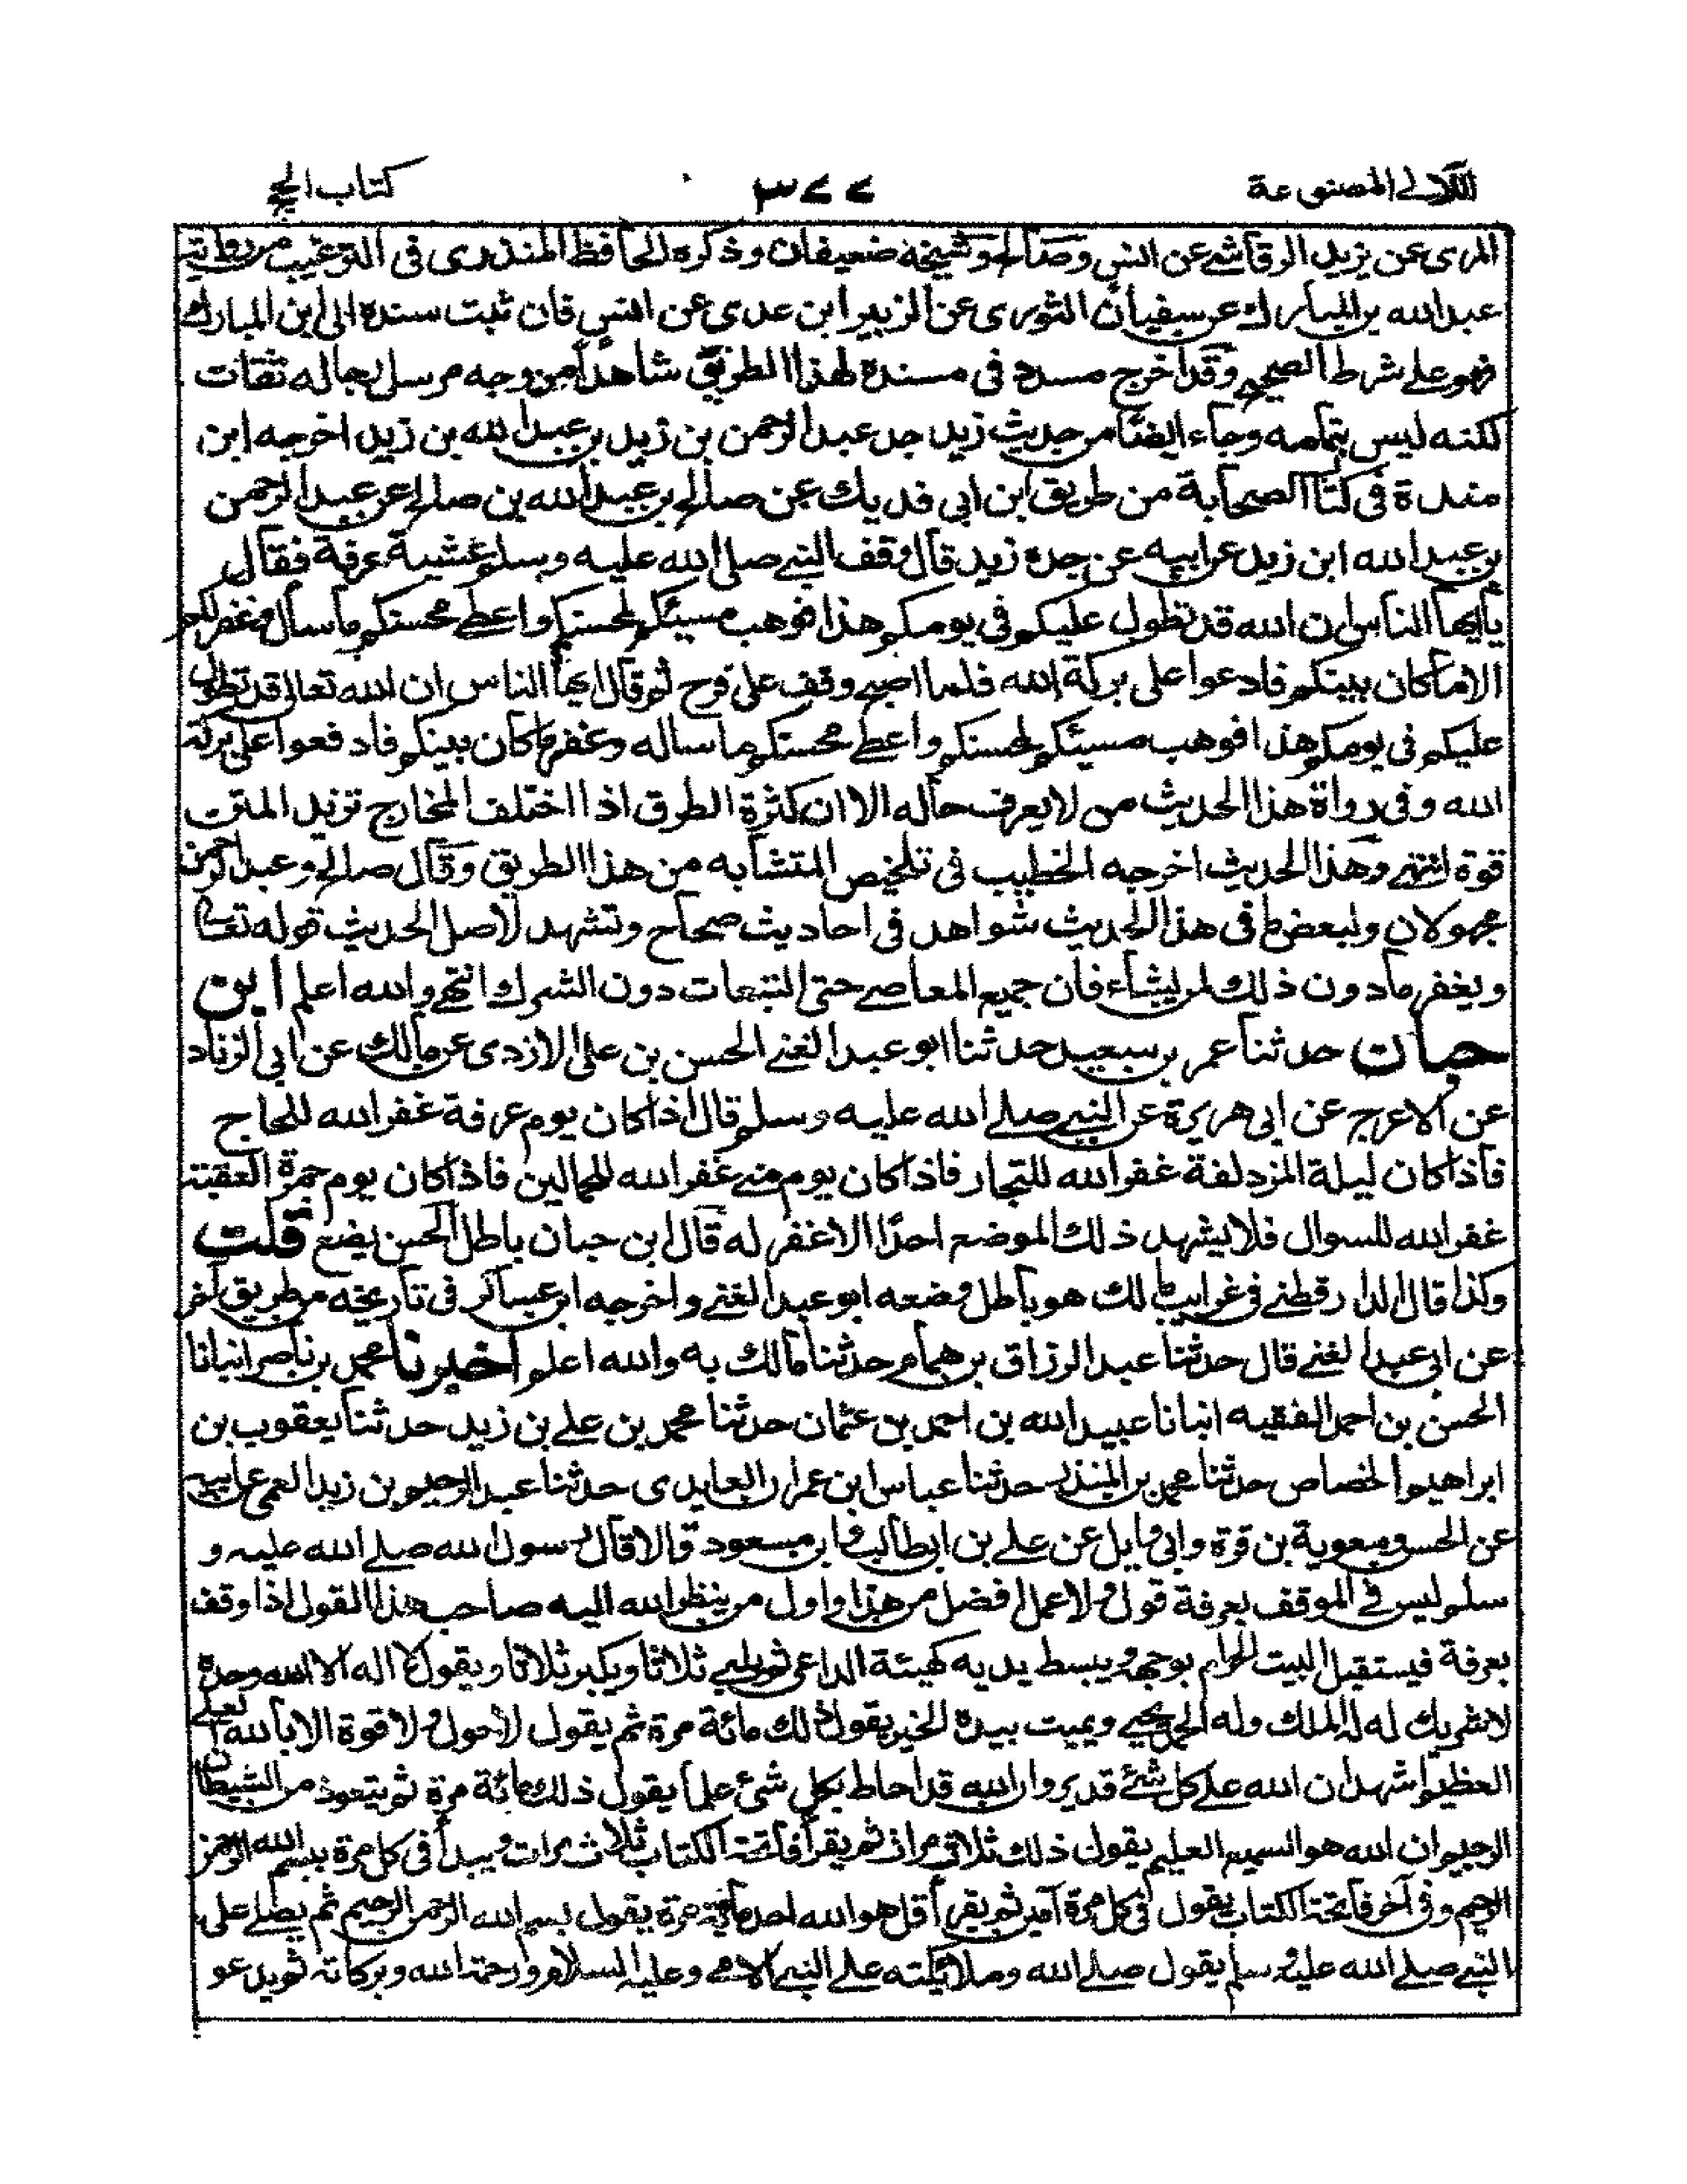 اللآلى المصنوعة ٣٧٧ كتاب الحج
المرى عن يزيد الرقاشى عن انس وصالح وشيخه ضعيفان وذكره الحافظ المنذرى فى الترغيب من رواية
عبد الله بن المبارك عن سفيان الثورى عن الزبير ابن عدى عن انس فان ثبت سنده الى ابن المبارك
فهو على شرط الصحيح وقد اخرج مسدد فى مسنده لهذا الطريق شاهدا من وجه مرسل رجاله ثقات
لكنه ليس بتمامه وجاء ايضا من حديث زيد جد عبد الرحمن بن زيد بن عبد الله بن زيد اخرجه ابن
مندة فى كتاب الصحابة من طريق ابن ابى فديك عن صالح بن عبد الله بن صالح عن عبد الرحمن
بن عبد الله ابن زيد عن ابيه عن جده زيد قال وقف النبى صلى الله عليه وسلم عشية عرفة فقال
يا ايها الناس ان الله قد تطول عليكم فى يومكم هذا فوهب مسيئكم لمحسنكم واعطى محسنكم ما سأل وغفر لكم
الا ما كان بينكم فادعوا على بركة الله فلما اصبح وقف على قزح ثم قال ايها الناس ان الله تعالى قد تطول
عليكم فى يومكم هذا فوهب مسيئكم لمحسنكم واعطى محسنكم ما ساله وغفر ما كان بينكم فادفعوا على بركة
الله وفى رواة هذا الحديث من لا يعرف حاله الا ان كثرة الطرق اذا اختلف المخارج تزيد المتن
قوة انتهى وهذا الحديث اخرجه الخطيب فى تلخيص المتشابه من هذا الطريق وقال صالح وعبد الرحمن
مجهولان ولبعض ما فى هذا الحديث شواهد فى احاديث صحاح وتشهد لاصل الحديث قوله تعالى
ويغفر ما دون ذلك لمن يشاء فان جميع المعاصى حتى التبعات دون الشرك انتهى والله اعلم ابن
حبان حدثنا عمر بن سعيد حدثنا ابو عبد الغنى الحسن بن على الازدى عن مالك عن ابى الزناد
عن الاعرج عن ابى هريرة عن النبى صلى الله عليه وسلم قال اذا كان يوم عرفة غفر الله للحاج
فاذا كان ليلة المزدلفة غفر الله للتجار فاذا كان يوم منى غفر الله للجمالين فاذا كان يوم جمرة العقبة
غفر الله للسوال فلا يشهد ذلك الموضع احدا الا غفر له قال ابن حبان باطل الحسن يضع قلت
وكذا قال الدارقطنى فى غرايب مالك هو باطل وضعه ابو عبد الغنى واخرجه ابن عساكر فى تاريخه من طريق اخر
عن ابى عبد الغنى قال حدثنا عبد الرزاق بن همام حدثنا مالك به والله اعلم اخبرنا محمد بن ناصر انبانا
الحسن بن احمد الفقيه انبانا عبيد الله بن احمد بن عثمان حدثنا محمد بن على بن زيد حدثنا يعقوب بن
ابراهيم الخصاص حدثنا محمد بن المنذر حدثنا عباس ابن عمران العابدى حدثنا عبد الرحيم بن زيد العمى عن ابيه
عن الحسن ومعوية بن قرة وابى وايل عن على بن ابى طالب وابن مسعود قالا قال رسول الله صلى الله عليه و
سلم ليس فى الموقف بعرفة قول ولا عمل افضل من هذا واول من ينظر الله اليه صاحب هذا القول اذا وقف
بعرفة فيستقبل البيت الحرام بوجهه ويبسط يديه كهيئة الداعى ثم يلبى ثلاثا ويكبر ثلاثا ويقول لا اله الا الله وحده
لا شريك له له الملك وله الحمد يحيى ويميت بيده الخير يقول ذلك مائة مرة ثم يقول لا حول ولا قوة الا بالله العلى
العظيم اشهد ان الله على كل شئ قدير وان الله قد احاط بكل شئ علما يقول ذلك مائة مرة ثم يتعوذ من الشيطان
الرجيم ان الله هو السميع العليم يقول ذلك ثلاث مرات ثم يقرأ فاتحة الكتاب ثلاث مرات ويبدأ فى كل مرة ببسم الله الرحمن
الرحيم وفى آخر فاتحة الكتاب يقول فى كل مرة آمين ثم يقرأ قل هو الله احد مائة مرة يقول بسم الله الرحمن الرحيم ثم يصلى على
النبى صلى الله عليه وسلم يقول صلى الله وملائكته على النبى الامى وعليه السلام ورحمة الله وبركاته ثم يدعو